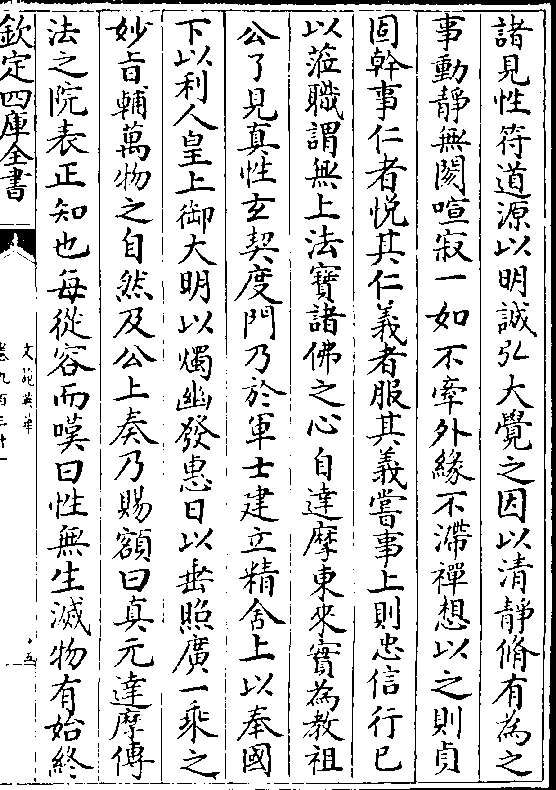 諸見性符道源以明誠弘大覺之因以清靜脩有為之
事動靜無閡喧寂一如不牽外緣不滯禪想以之則貞
固幹事仁者悅其仁義者服其義嘗事上則忠信行已
以蒞職謂無上法寶諸佛之心自達摩東來實為教祖
公了見真性玄契度門乃於軍士建立精舍上以奉國
下以利人皇上御大明以燭幽發惠日以垂照廣一乘之
妙旨輔萬物之自然及公上奏乃賜額曰真元達摩傳
法之院表正知也每從容而嘆曰性無生滅物有始終
欽定四庫全書
文苑英華
卷九百三十一
五